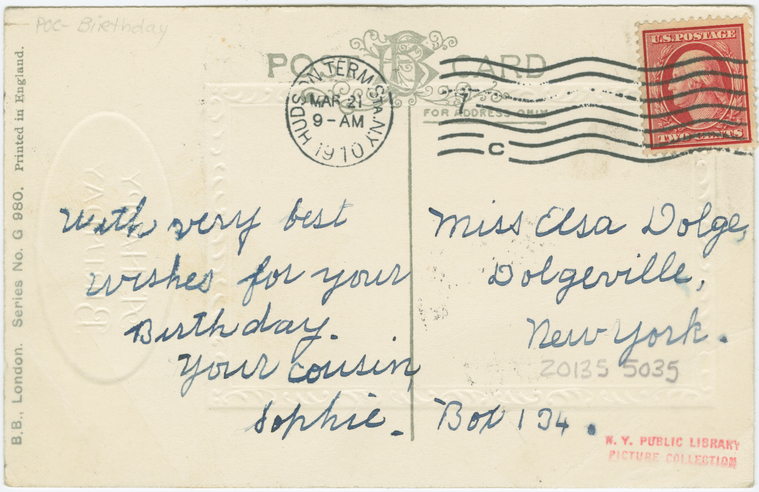 POC- Birthday
POST CARD
FOR ADDRESS ONLY
HUDSON TERM. STA. N.Y.
MAR 21
9-AM
1910
7
C
U.S. POSTAGE
TWO CENTS
With very best
wishes for your
Birthday.
Your cousin
Sophie.
Miss Elsa Dolge,
Dolgeville,
New York.
20135 5035
Box 134.
N. Y. PUBLIC LIBRARY
PICTURE COLLECTION
B.B., London. Series No. G 980. Printed in England.